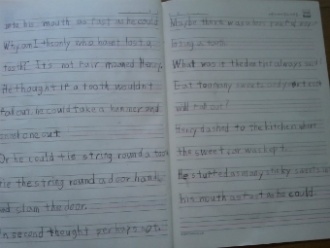 his mouth as fast as he could
Why am I the only one who hasnt lost a
teeth. Its not fair moaned Henry,
He thought if a tooth wouldn't
fall out he could take a hammer and
one out
Or he could tie string round a tooth
tie the string round a door handle
and slam the door.
On second thought perhaps not.
Maybe there was
losing a tooth.
What was it the dentist always said
Eat too many sweets and your teeth
will fall out!
Henry dashed to the kitchen where
the sweet jar was kept.
He stuffed as many sticky sweets into
his mouth as fast as he could.